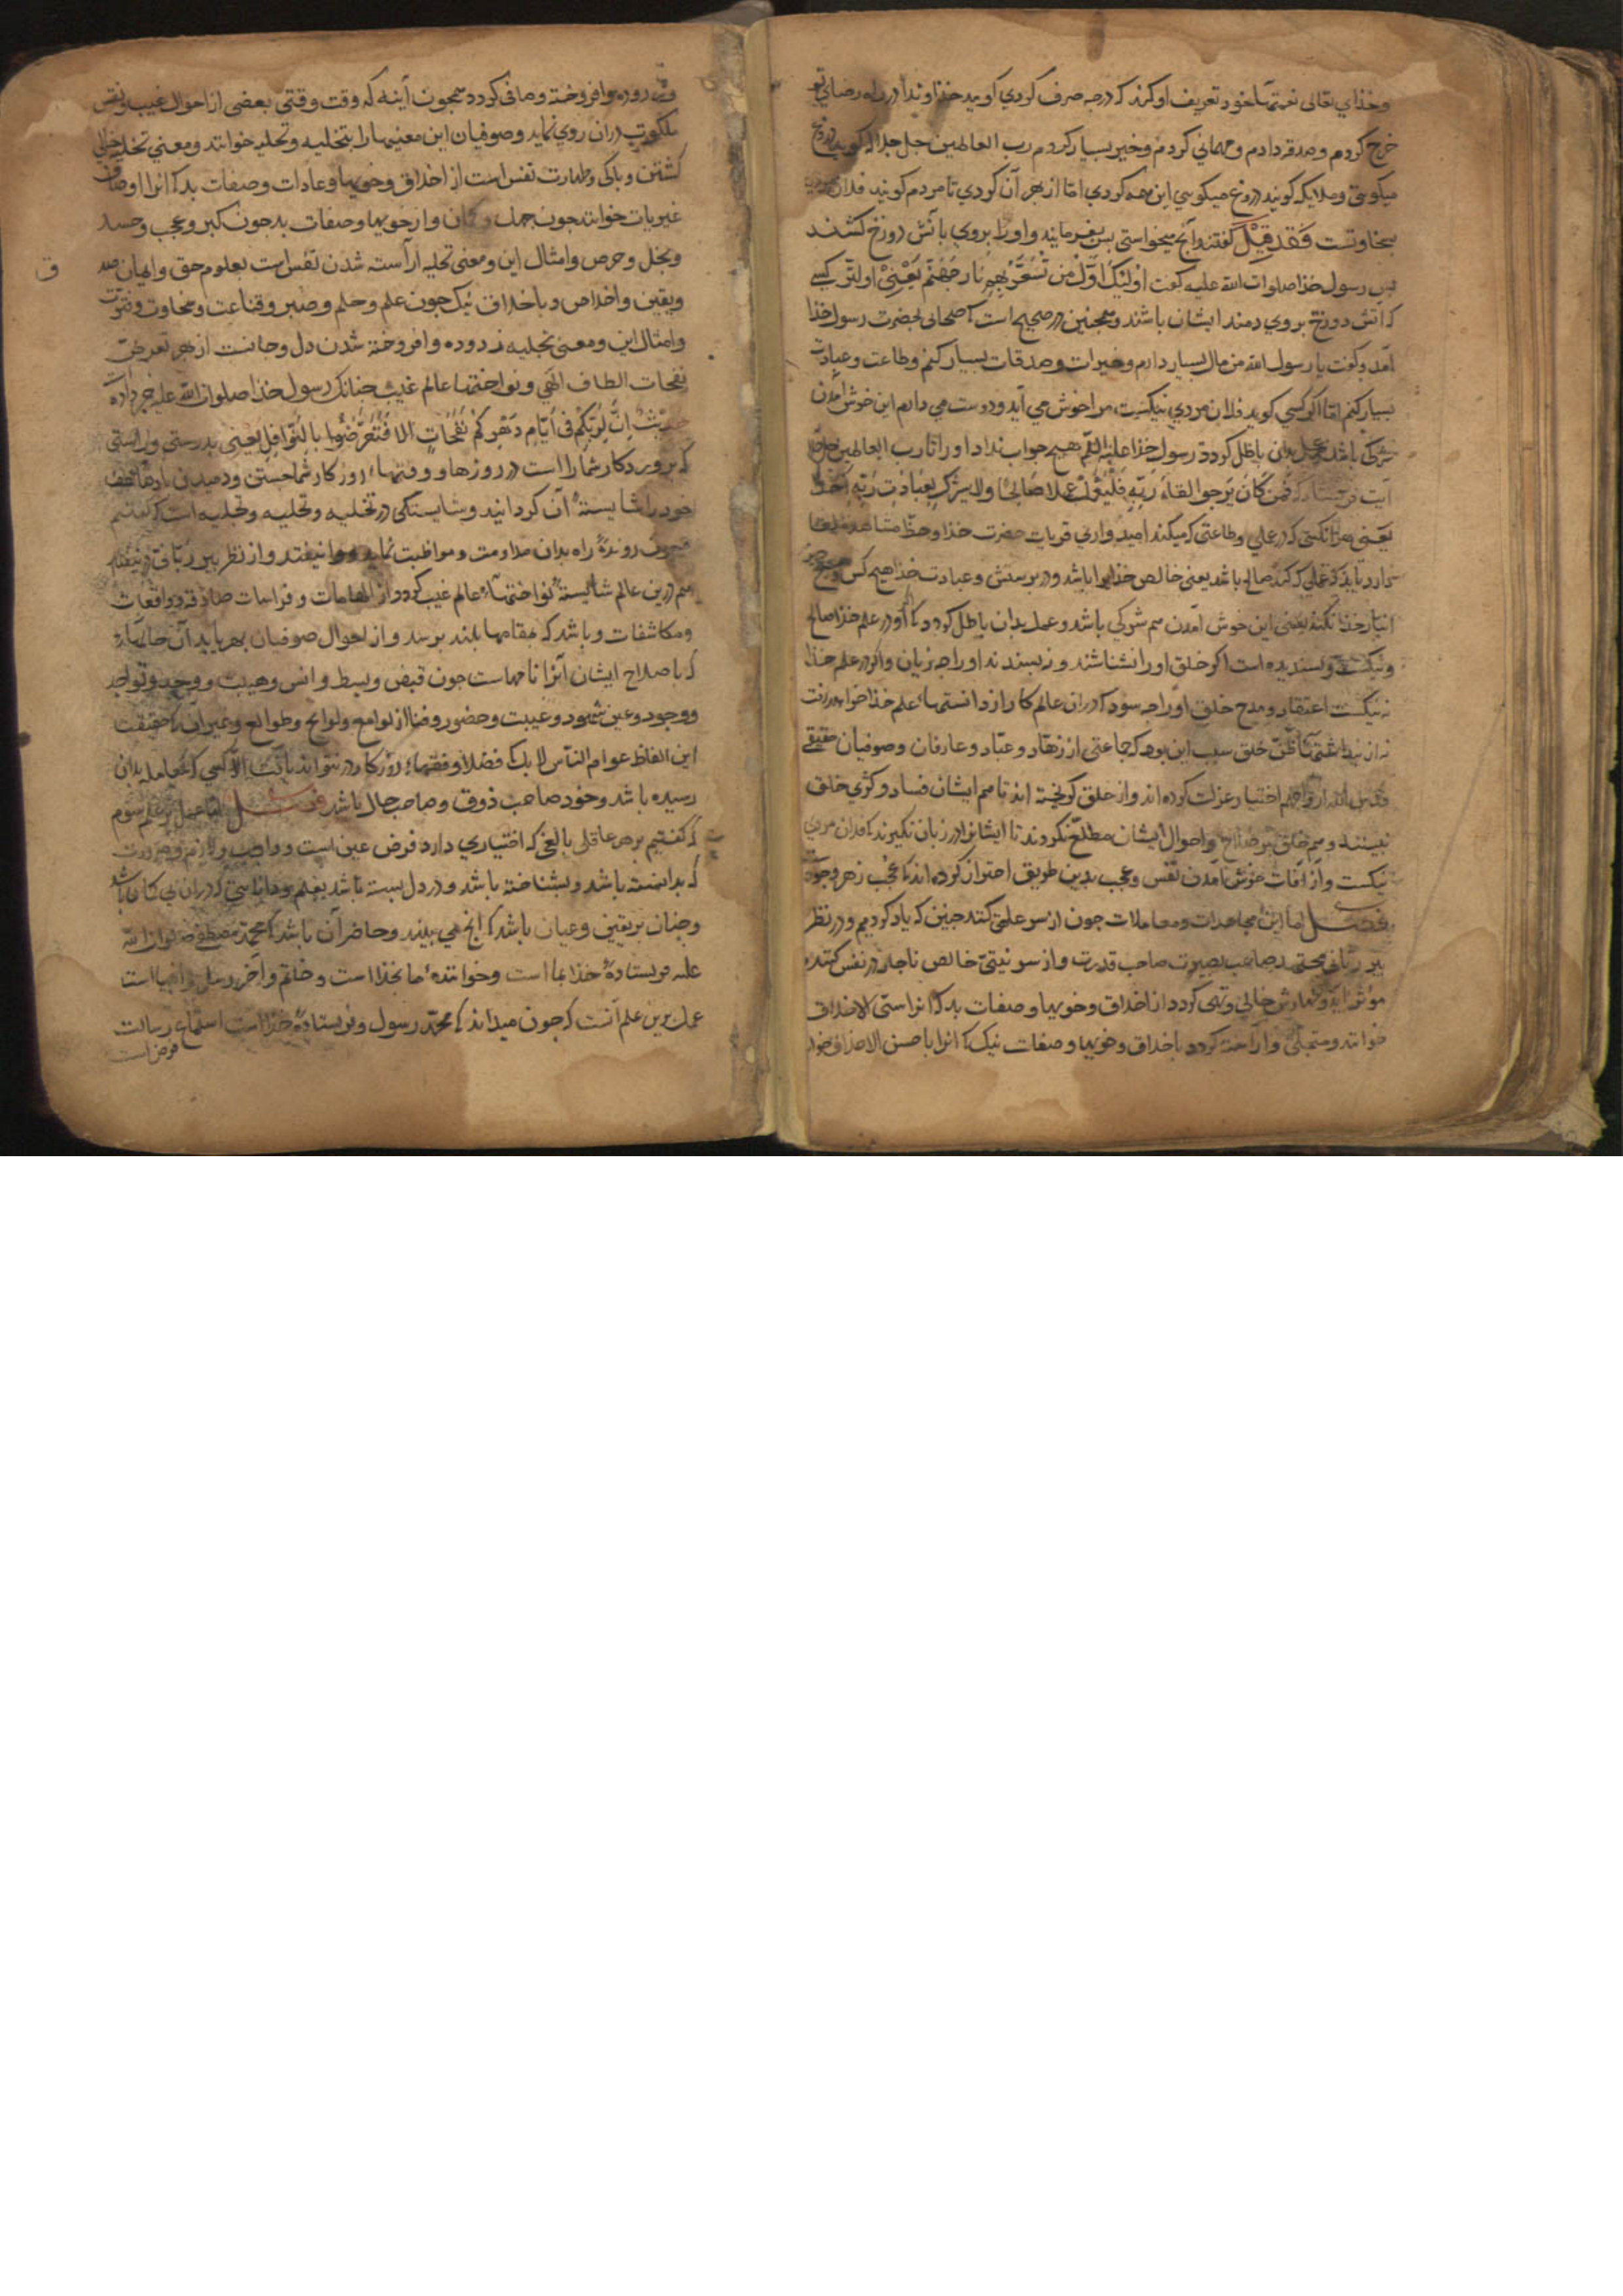 وخذای تعالی نعمتها خود تعریف او کند که درجه صرف کردی کوید خذاوندا در راه رضای تو
خرج کردم وصدقه دادم ومهمانی کردم وخیر بسیار کردم رب العالمین جل جلاله کوید دروغ
میکویی وملایکه کویند دروغ میکویی این همه کردی اما از بهر آن کردی تا مردم کویند فلان
سخاوتست فَقَد قِیْلَ کفتند وآنچ میخواستی پس بفرمایند و او را بروی بآتش دوزخ کشند
پس رسول خذا صلوات الله علیه کفت اولئِکَ اوّل مَن تُسَعَّرُ بِهِم نار جَهنّم یَعْنِی اولتر کسی
که آتش دوزخ بروی دمند ایشان باشند وهمچنین در صحیح است که صحابی بحضرت رسول خذا
آمد وکفت یا رسول الله من مال بسیار دارم وخیرات وصدقات بسیار کنم وطاعت وعبادت
بسیار کنم اما اکر کسی کوید فلان مردی نیکست مرا خوش می آید ودوست می دارم این خوش آمدن
شرکی باشد وعمل بدان باطل کردد رسول خذا علیه السلم هیچ جواب نداد او را تا رب العالمین
آیت فرستاد که فَمَن کَانَ یَرجوا لقاءَ رَبّهِ فَلْیَعْمَل عملا صَالِحًا ولا یشرک بِعِبَادَتِ رَبّهِ اَحَدًا
یعنی هر آنکسی که در عملی وطاعتی که میکند امیدواری قربات حضرت خذا وحظ مشاهده
دارد باید که عملی که کند صالح باشد یعنی خالص خذایرا باشد ودر پرستش وعبادت خذا هیچ کس
انباز خذا نکند یعنی این خوش آمدن هم شرکی باشد وعمل بدان باطل کردد که او در علم خذا صالح
ونیکست وپسندیده است اکر خلق او را نشناسند ونپسندند او را چه زیان واکر در علم خذا
نه نیکست اعتقاد ومدح خلق او را چه سود که در آن عالم کار از دانستهاء علم خذا خواهد رفت
نه از پنداشتهاء ظنّ خلق سبب این بود که جماعتی از زهّاد وعبّاد وعارفان وصوفیان حقیقی
قدس الله ارواحهم اختیار عزلت کرده اند واز خلق کریخته اند تا هم ایشان فساد وکژی خلق
نبینند وهم خلق بر صلاح واحوال ایشان مطلع نکردند تا ایشانرا در زبان نکیرند که فلان مردی
نیکست واز آفات خوش آمدن نفس وعجب بدین طریق احتراز کرده اند که عُجْب زهر
فصل اما این مجاهدات ومعاملات چون از سر علمی کند چنین که یاد کردیم ودر نظر
پیر ربانی محتمد صاحب بصیرت صاحب قدرت واز سر نیتی خالص ناچار در نفس کننده
موثر آید ونهادش خالی وتهی کردد از اخلاق وخویها وصفات بد که آنرا سیّی الاخلاق
خوانند ومتجلی وآراسته کردد باخلاق وخویها وصفات نیک که آنرا باحسن الاخلاق
زدوده وافروخته وصافی کردد همچون آینه که وقت وقتی بعضی از احوال غیب
ملکوت در آن روی نماید وصوفیان این معنیها را بتخلیه وتحلیه خوانند ومعنی تخلیه خالی
کشتن وپاکی وطهارت نفس است از اخلاق وخویها وعادات وصفات بد که آنرا اوصاف
غیریات خوانند چون جهل وکمان واز خویها وصفات بد چون کبر وعجب وحسد
وبخل وحرص وامثال این ومعنی تحلیه آراسته شدن نفس است بعلوم حق وایمان
ویقین واخلاص وباخلاق نیک چون علم وحلم وصبر وقناعت وسخاوت وفتوت
وامثال این ومعنی تجلیه زدوده وافروخته شدن دل وجانست از بهر تعرض
نفحات الطاف الهی ونواختهاء عالم غیب چنانک رسول خذا صلوات الله علیه خبر داده
حدیث اِنَّ لِرَبِّکُمْ فی اَیّامِ دَهْرِکُمْ نَفَحَاتٍ الا فَتَعَرَّضُوا بِالنّوَافِلِ یعنی بدرستی وراستی
که پروردکار شما را است در روزها ووقتهاء روزکار شما جستن ودمیدن بادهاء
خود را شایسته آن کردانید وشایستکی در تخلیه وتحلیه وتجلیه است که کفتیم
چون رونده راه بدان مداومت ومواظبت نماید ووا نیفتد واز نظر پیر ربانی نیفتد
هم درین عالم شایسته نواختهاء عالم غیب کردد از الهامات وفراسات صادقه وواقعات
ومکاشفات وباشد که بمقامها بلند برسد واز احوال صوفیان بهره یابد آن حالها
که باصلاح ایشان آنرا نامهاست چون قبض وبسط وانس وهیبت ووجد وتواجد
ووجود وعین شهود وغیبت وحضور وفنا از لوامع ولوایح وطوالع وغیر آن که حقیقت
این الفاظ عوام الناس لا بلک فضلا وفقهاء روزکار در نتوانند یافت الا کسی که بمعامله بدان
رسیده باشد وخود صاحب ذوق وصاحب حال باشد فصل اما عمل بر علم سوم
که کفتیم بر هر عاقلی بالغی که اختیاری دارد فرض عین است وواجب ولازم وضرورت
که بدانسته باشد وبشناخته باشد ودر دل بسته باشد بعلم ودانایی که در آن بی کمان باشد
وچنان بر یقین وعیان باشد که آنچ می بیند وحاضر آن باشد که محمد مصطفی صلوات الله
علیه فرستاده خذا بما است وخواننده ما بخذا است وخاتم وآخر رسل وانبیا است
عمل برین علم آنست که چون میداند که محمد رسول وفرستاده خذا است استماع رسالت
فرض است
ق